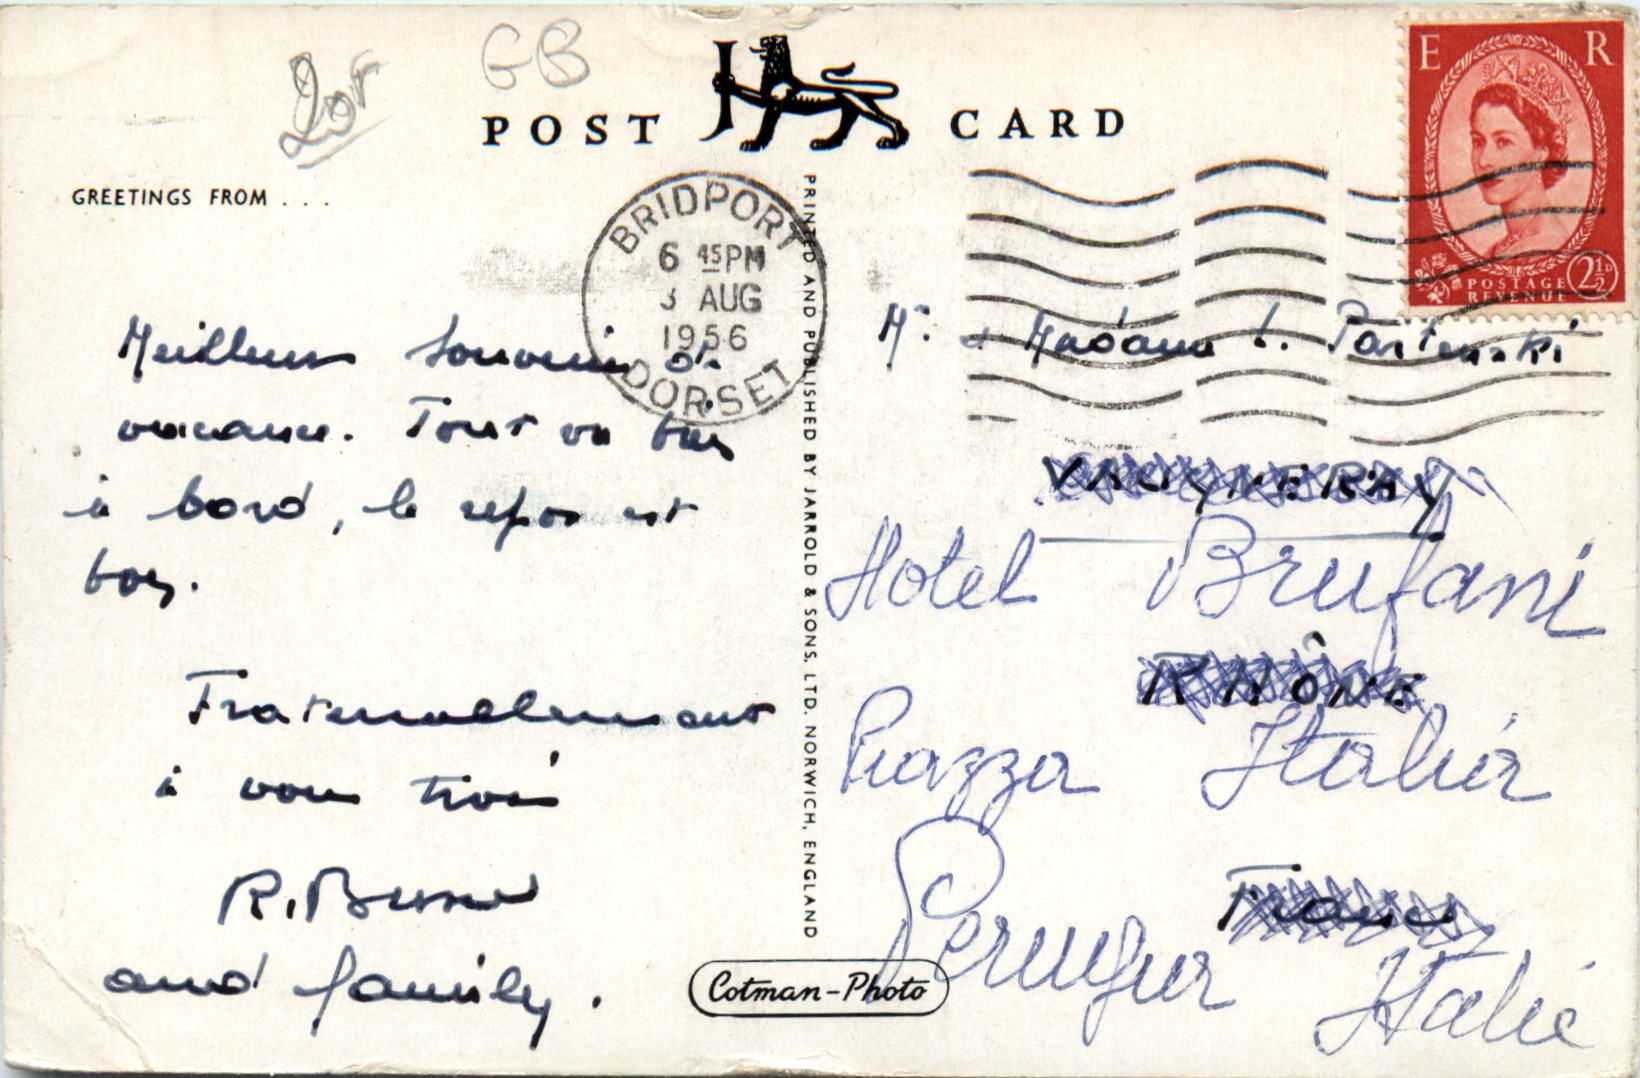 GB
POST CARD
GREETINGS FROM . . .
E R
POSTAGE
REVENUE
2½D
BRIDPORT
6 45PM
3 AUG
1956
DORSET
Meilleurs souvenirs de
vacances. Tout va bien
à bord, le repos est
bon.
Fraternellement
à vous trois
R.
and family.
PRINTED AND PUBLISHED BY JARROLD & SONS. LTD. NORWICH, ENGLAND
Cotman-Photo
Mr. & Madame L.
VAUGNERAY
Hotel Brufani
RHÔNE
Piazza Italia
France
Italie